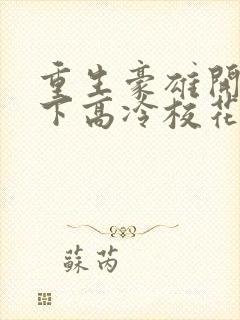 重生豪雄開
下高冷校花
蘇芮